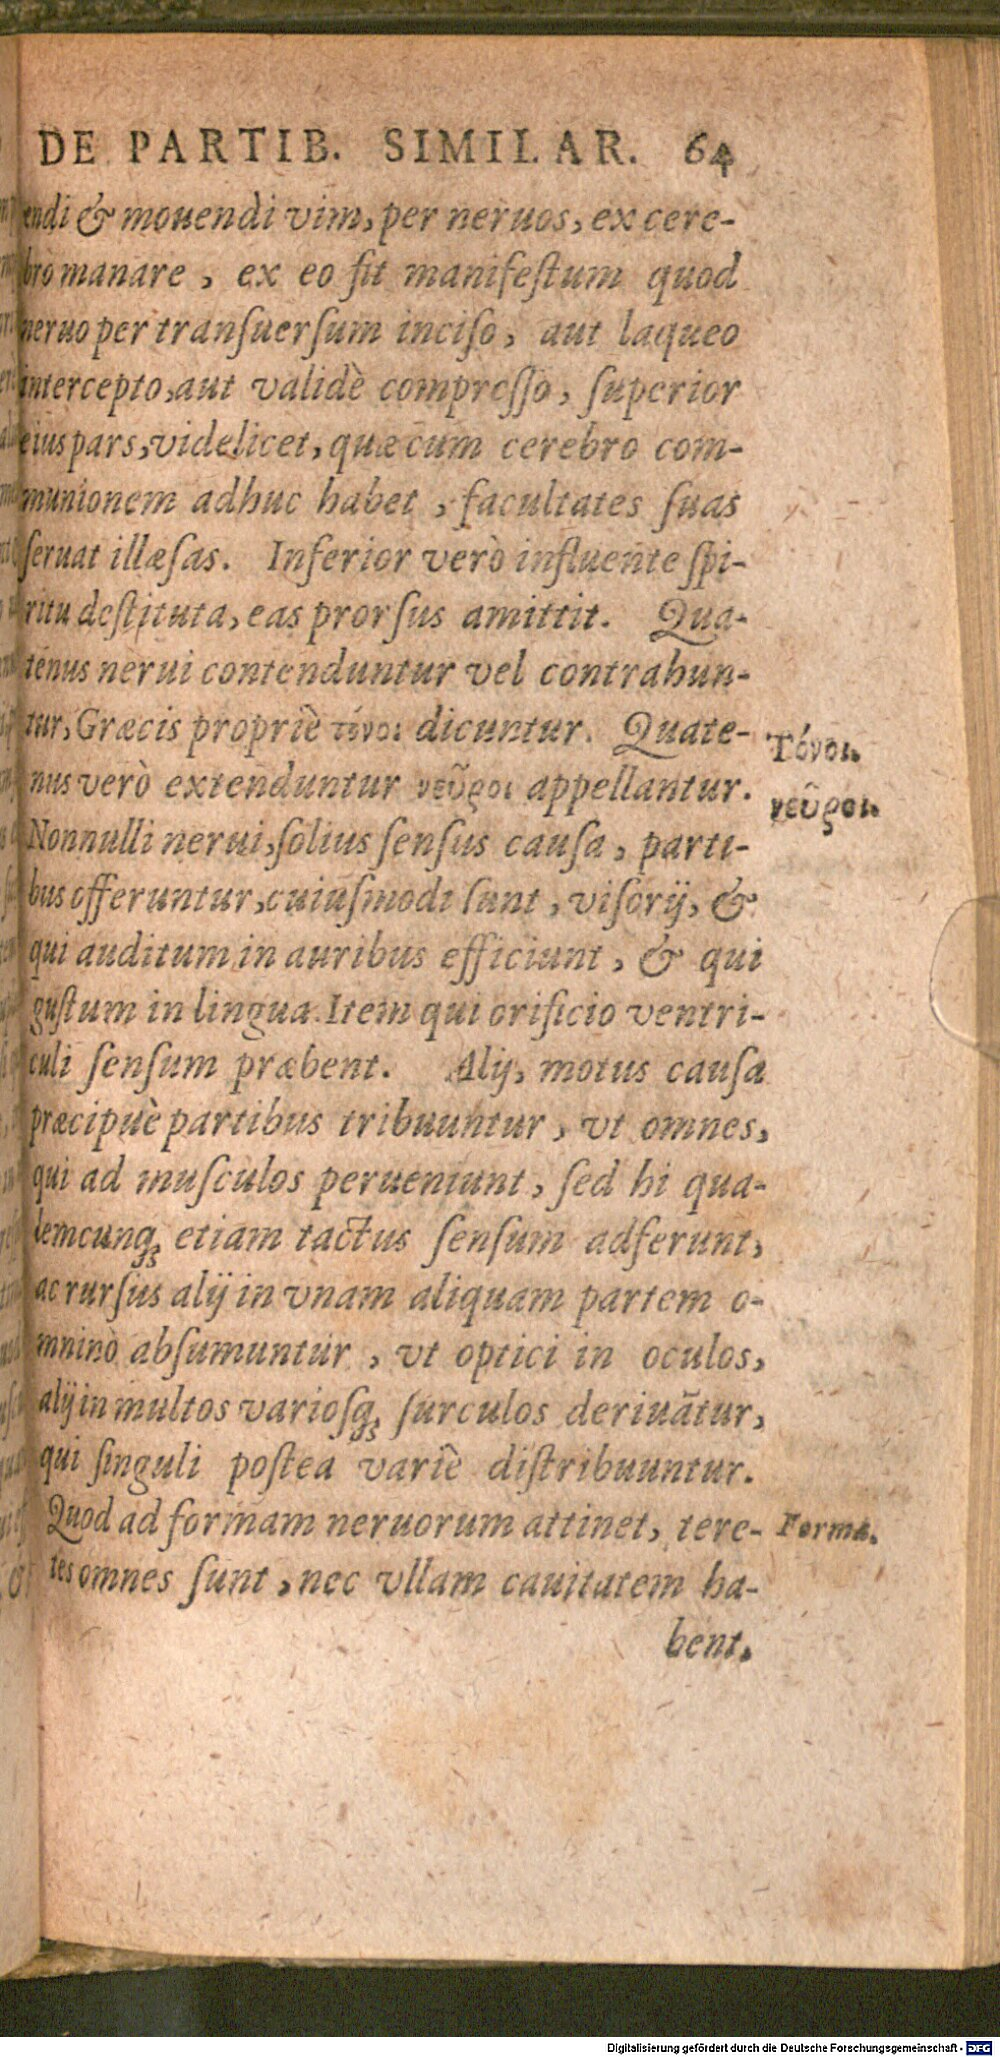 DE PARTIB. SIMILAR. 64
endi & mouendi vim, per neruos, ex cere-
bro manare, ex eo fit manifeſtum quod
neruo per tranſuerſum inciſo, aut laqueo
intercepto, aut validè compreſſo, ſuperior
eius pars, videlicet, quæ cum cerebro com-
munionem adhuc habet, facultates ſuas
ſeruat illæſas. Inferior verò influente ſpi-
ritu deſtituta, eas prorſus amittit. Qua-
tenus nerui contenduntur vel contrahun-
tur, Græcis propriè τόνοι dicuntur. Quate-
nus verò extenduntur νεῦροι appellantur.
Τόνοι.
νεῦροι.
Nonnulli nerui, ſolius ſenſus cauſa, parti-
bus offeruntur, cuiuſmodi ſunt, viſorij, &
qui auditum in auribus efficiunt, & qui
guſtum in lingua. Item qui orificio ventri-
culi ſenſum præbent. Alij, motus cauſa
præcipuè partibus tribuuntur, vt omnes,
qui ad muſculos perueniunt, ſed hi qua-
lemcunq; etiam tactus ſenſum adferunt,
ac rurſus alij in vnam aliquam partem o-
mninò abſumuntur, vt optici in oculos,
alij in multos varioſq; ſurculos deriuãtur,
qui ſinguli poſtea variè diſtribuuntur.
Quod ad formam neruorum attinet, tere-
Forma.
tes omnes ſunt, nec vllam cauitatem ha-
bent.
Digitalisierung gefördert durch die Deutsche Forschungsgemeinschaft - DFG